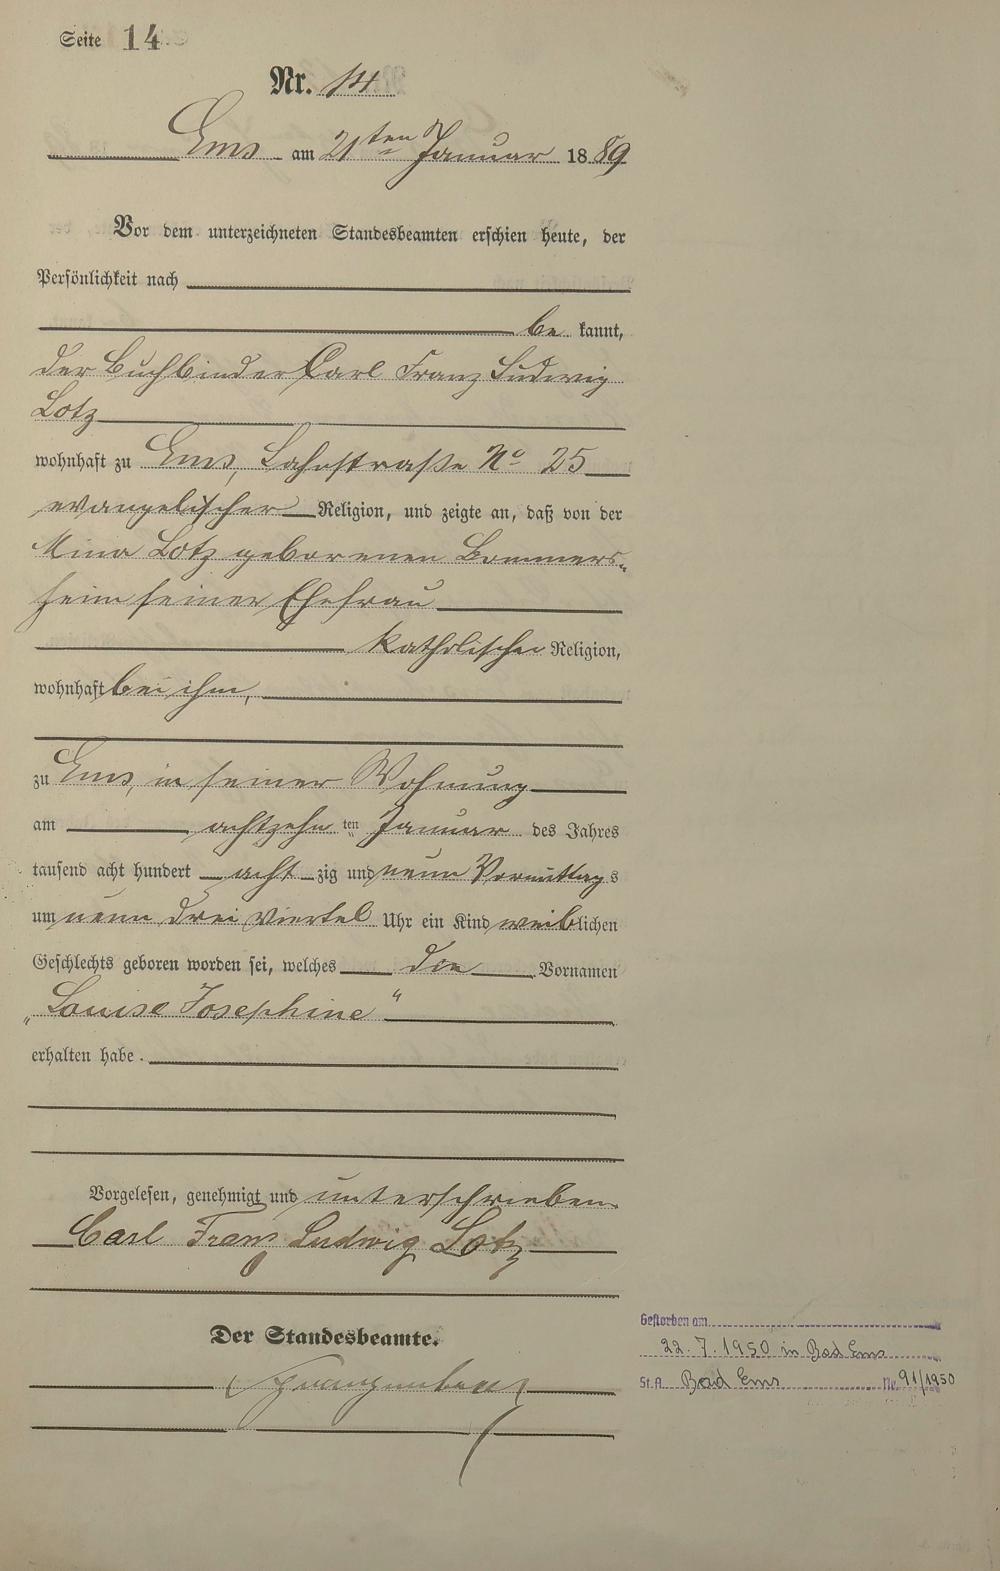 Seite 14
Nr. 14
Ems am 21ten Januar 1889
Vor dem unterzeichneten Standesbeamten erschien heute, der
Persönlichkeit nach
be kannt,
der Buchbinder Carl Franz Ludwig
Lotz
wohnhaft zu Ems, Lahnstraße No 25
evangelischer Religion, und zeigte an, daß von der
Mina Lotz geborenen Bommers-
heim seiner Ehefrau
katholischer Religion,
wohnhaft bei ihm,
zu Ems, in seiner Wohnung
am achtzehn ten Januar des Jahres
tausend acht hundert acht zig und neun Vormittags
um neun drei viertel Uhr ein Kind weiblichen
Geschlechts geboren worden sei, welches die Vornamen
„Louise Josephine“
erhalten habe.
Vorgelesen, genehmigt und unterschrieben
Carl Franz Ludwig Lotz
Der Standesbeamte.
Gestorben am
22.7.1950 in Bad Ems
St.A. Bad Ems Nr. 91/1950